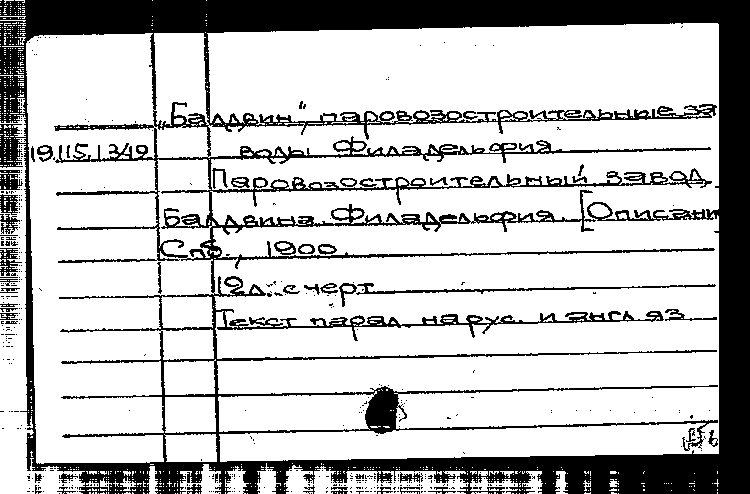 „Балдвин“, паровозостроительные за
19.115.1349 воды Филадельфия.
Паровозостроительный завод
Балдвина. Филадельфия. [Описани
Спб., 1900.
12л. с черт.
Текст парал. на рус. и англ яз